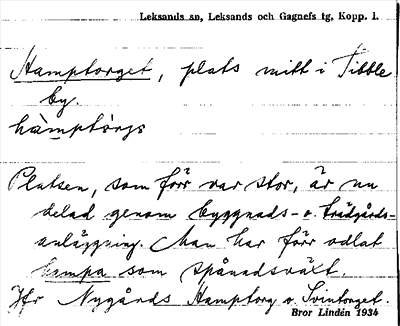 Leksands sn, Leksands och Gagnefs tg, Kopp. l.
Hamptorget, plats mitt i Tibble
by.
hàmptòrgs
Platsen, som förr var stor, är nu
delad genom byggnads- o. trädgårds-
anläggning. Man har förr odlat
hampa som spånadsväxt.
Jfr Nygårds Hamptorg o. Svintorget.
Bror Lindén 1934